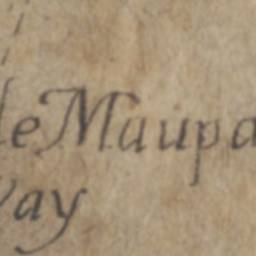 le Maupa
vay